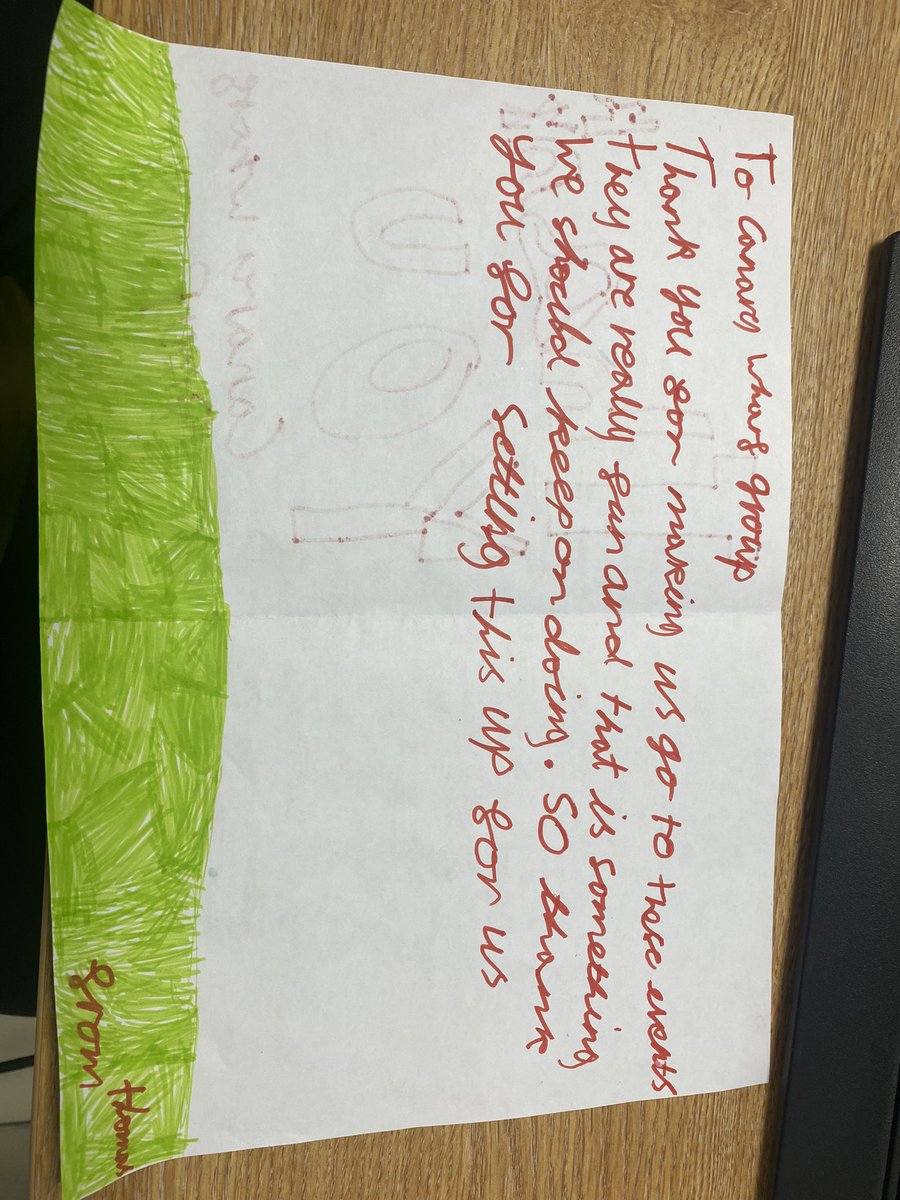 To Canary wharf group
Thank you for making us go to these events
they are really fun and that is something
we should keep on doing. So thank
you for setting this up for us
from
thomas